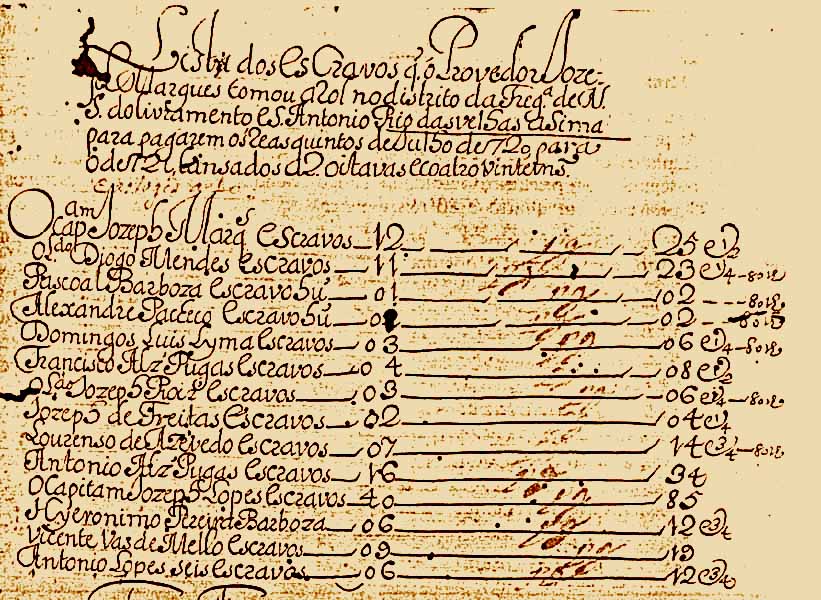 Lista dos esCravos q̃ o Provedor Joze-
Marques tomou a Rol no distrito da Freg.ª de N.
S. do livramento e S. Antonio Rio das velhas asima
para pagarem os Reas quintos de Julho de 720 para
o de 721, Lansados a 2 oitavas e coatro vinteins.
O Cap.am Jozeph Marq̃s esCravos 12 25 e 1/2
O s.do Diogo Mendes escravos 11 23 e 1/4
Pascoal Barboza escravo hũ 01 02
Alexandre Pacheco escravo hũ 01 02
Domingos Luis Lyma escravos 03 06 e 1/4
Francisco Alz Pugas escravos 04 08 e 1/2
O s.do Jozeph escravos 03 06 e 1/4
Jozeph de Freitas escravos 02 04 e 1/4
Lourenso de Azevedo escravos 07 14 e 3/4
Antonio Alz Pugas escravos 16 34
O Capitam Jozeph Lopes escravos 40 85
Hyeronimo Pereira Barboza 06 12 e 3/4
Vicente Vas de Mello escravos 09 19
Antonio Lopes seis escravos 06 12 e 3/4